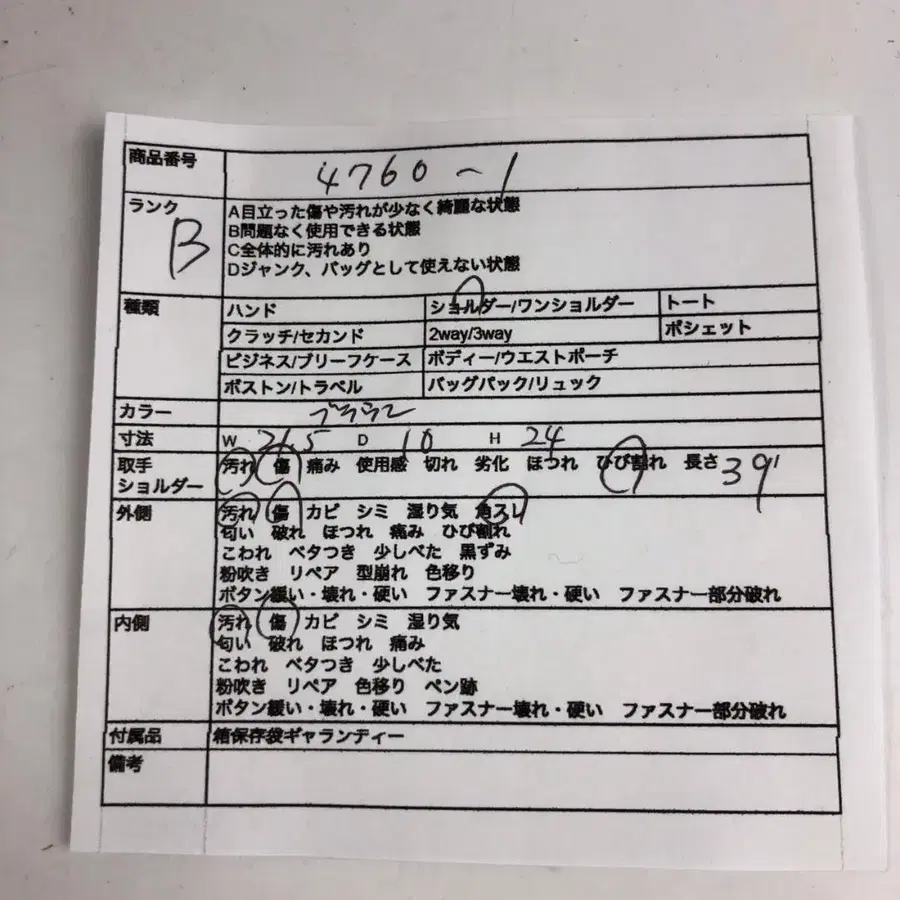 商品番号 4760~1
ランク B
A目立った傷や汚れが少なく綺麗な状態
B問題なく使用できる状態
C全体的に汚れあり
Dジャンク、バッグとして使えない状態
種類 ハンド ショルダー/ワンショルダー トート
クラッチ/セカンド 2way/3way ポシェット
ビジネス/ブリーフケース ボディー/ウエストポーチ
ボストン/トラベル バッグパック/リュック
カラー ブラウン
寸法 W 21.5 D 10 H 24
取手 汚れ 傷 痛み 使用感 切れ 劣化 ほつれ ひび割れ 長さ 39
ショルダー
外側 汚れ 傷 カビ シミ 湿り気 角スレ
匂い 破れ ほつれ 痛み ひび割れ
こわれ ベタつき 少しべた 黒ずみ
粉吹き リペア 型崩れ 色移り
ボタン緩い・壊れ・硬い ファスナー壊れ・硬い ファスナー部分破れ
内側 汚れ 傷 カビ シミ 湿り気
匂い 破れ ほつれ 痛み
こわれ ベタつき 少しべた
粉吹き リペア 色移り ペン跡
ボタン緩い・壊れ・硬い ファスナー壊れ・硬い ファスナー部分破れ
付属品 箱保存袋ギャランディー
備考